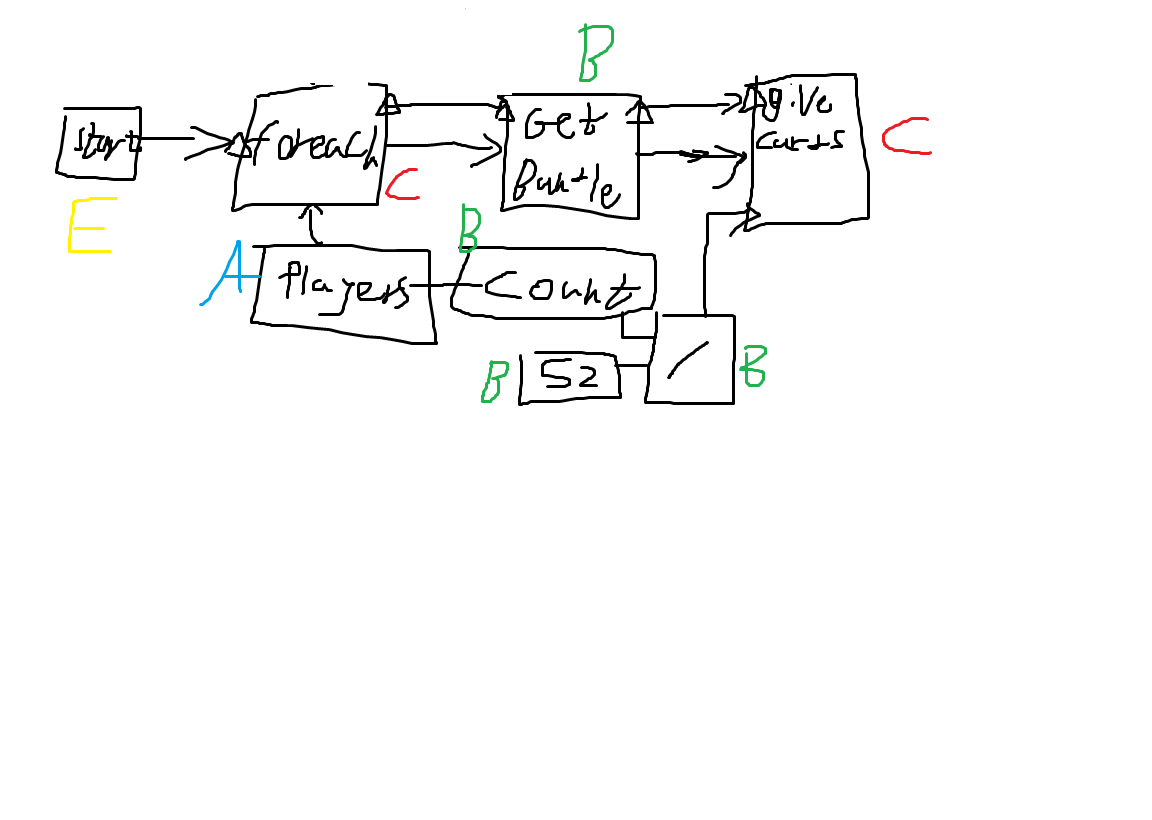 B
start
foreach
Get
Bundle
give
cards
C
C
E
A
Players
B
Count
B
52
/
B